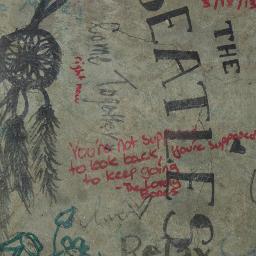 8/15/13
THE
BEATLES
Come Together
right now
You're not supposed
to look back, you're supposed
to keep going
- The Lovely
Bones
Relax